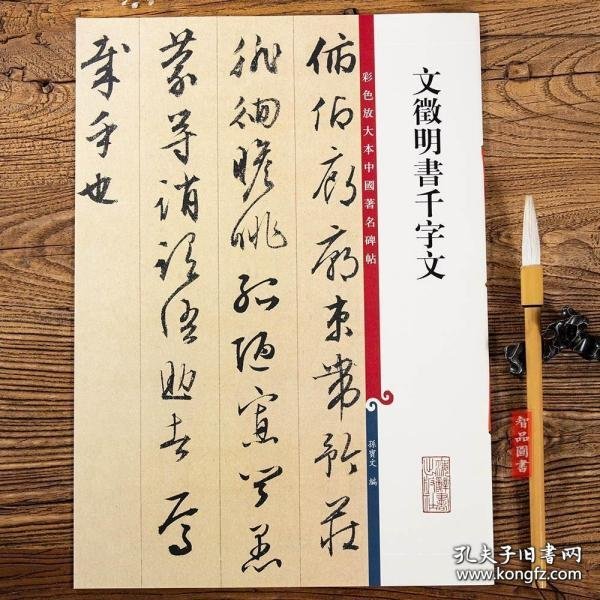 文徵明書千字文
彩色放大本中國著名碑帖
孫寶文 編
上海辭書出版社
俯仰廊廟束帶矜莊
徘徊瞻眺孤陋寡聞愚
蒙等誚謂語助者焉
哉乎也
智品圖書
孔夫子旧书网
www.kongfz.com